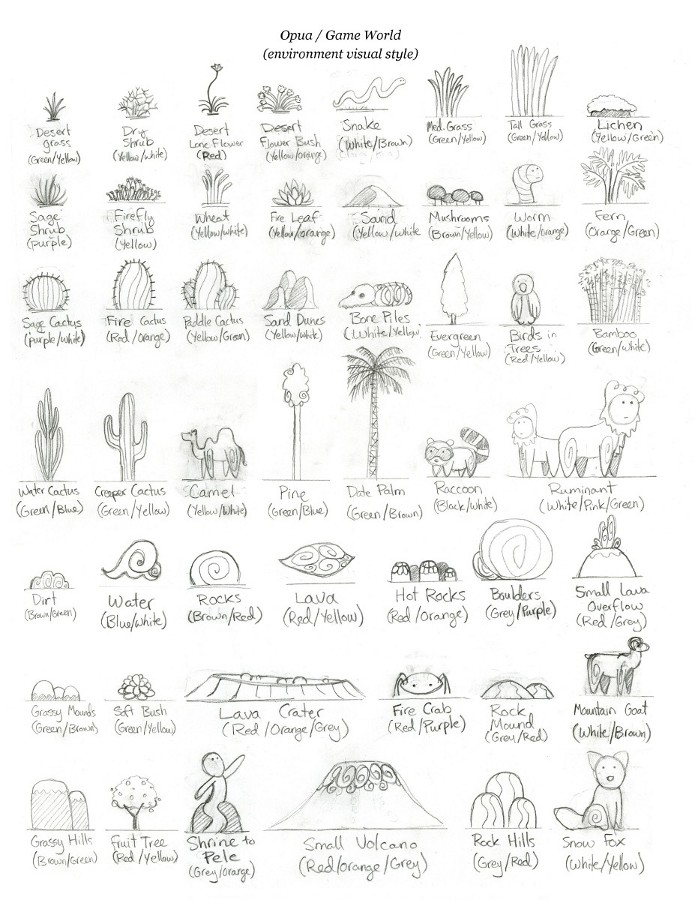 Opua / Game World
(environment visual style)
Desert grass (Green/Yellow)
Dry Shrub (Yellow/White)
Desert Lone Flower (Red)
Desert Flower Bush (Yellow/Orange)
Snake (White/Brown)
Med. Grass (Green/Yellow)
Tall Grass (Green/Yellow)
Lichen (Yellow/Green)
Sage Shrub (Purple)
Firefly Shrub (Yellow)
Wheat (Yellow/White)
Fire Leaf (Yellow/Orange)
Sand (Yellow/White
Mushrooms (Brown/Yellow)
Worm (White/Orange)
Fern (Orange/Green)
Sage Cactus (Purple/White)
Fire Cactus (Red/Orange)
Paddle Cactus (Yellow/Green)
Sand Dunes (Yellow/White)
Bone Piles (White/Yellow)
Evergreen (Green/Yellow)
Birds in Trees (Red/Yellow)
Bamboo (Green/White)
Water Cactus (Green/Blue)
Creeper Cactus (Green/Yellow)
Camel (Yellow/White)
Pine (Green/Blue)
Date Palm (Green/Brown)
Raccoon (Black/White)
Ruminant (White/Pink/Green)
Dirt (Brown/Green)
Water (Blue/White)
Rocks (Brown/Red)
Lava (Red/Yellow)
Hot Rocks (Red/Orange)
Boulders (Grey/Purple)
Small Lava Overflow (Red/Grey)
Grassy Mounds (Green/Brown)
Soft Bush (Green/Yellow)
Lava Crater (Red/Orange/Grey)
Fire Crab (Red/Purple)
Rock Mound (Grey/Red)
Mountain Goat (White/Brown)
Grassy Hills (Brown/Green)
Fruit Tree (Red/Yellow)
Shrine to Pele (Grey/Orange)
Small Volcano (Red/Orange/Grey)
Rock Hills (Grey/Red)
Snow Fox (White/Yellow)